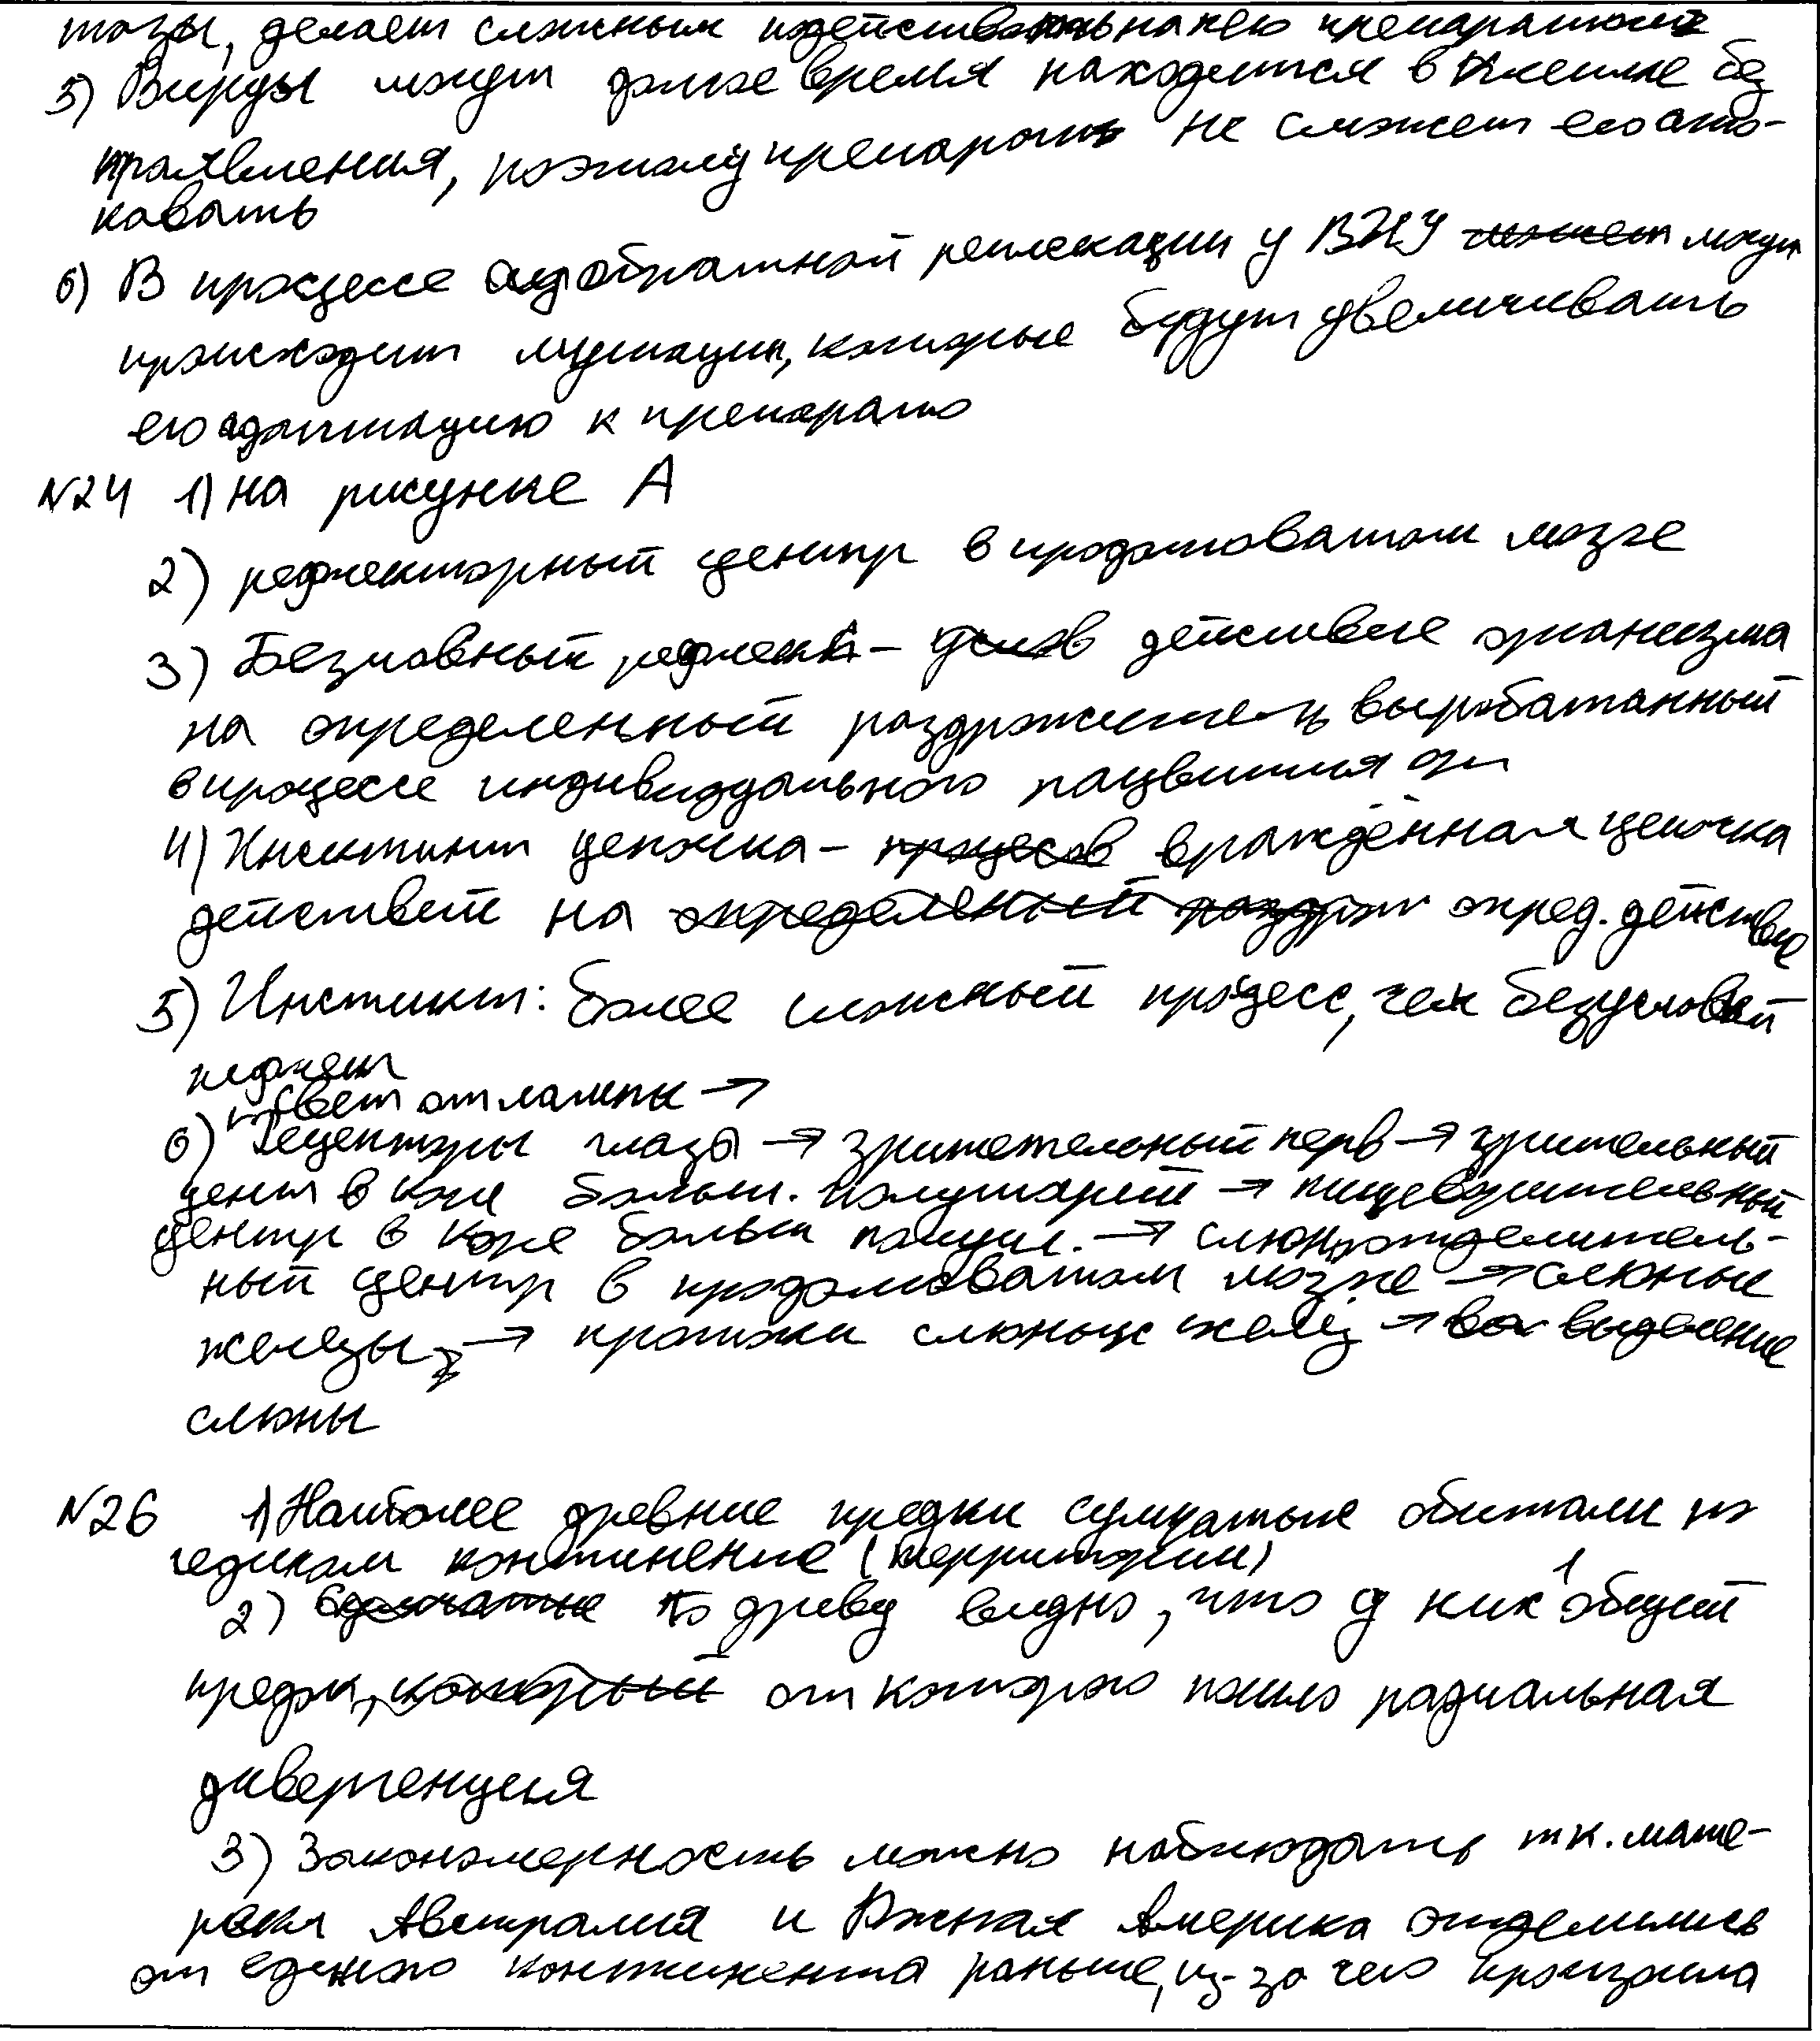 тазы, делает сложным воздействовать на нею препаратом
5) Вирусы могут долгое время находится в клетке без
проявления, поэтому препараты не сможет его ато-
ковать
6) В процессе обратной репликации у ВИЧ может могут
происходит мутации, которые будут увеличивать
его адаптацию к препарато
№24 1) на рисунке А
2) рефлекторный центр в продолговатом мозге
3) Безусловный рефлекс - услов действие организма
на определенный раздражитель выработанный
в процессе индивидуального развития ор
4) Инстинкт цепочка - процесов врождённая цепочка
действий на определённый раздраж опред. действие
5) Инстинкт: более сложный процесс, чем безусловный
рефлекс
свет от лампы →
6) Рецепторы глаза → зрительный нерв → зрительный
центр в коре больш. полушарий → пищеварительный
центр в коре больш полуш. → слюноотделитель-
ный центр в продолговатом мозге → слюные
железы → протоки слюных желёз → выделение
слюны
№26 1) Наиболее древние предки сумчатые обитали на
едином континенте (территории)
2) По древу видно, что у них 1 общий
предок, который от которого пошло радиальная
дивергенция
3) Закономерность можно наблюдать т.к. мате-
рики Австралия и Южная Америка отделились
от единого континента раньше, из-за чего произошла